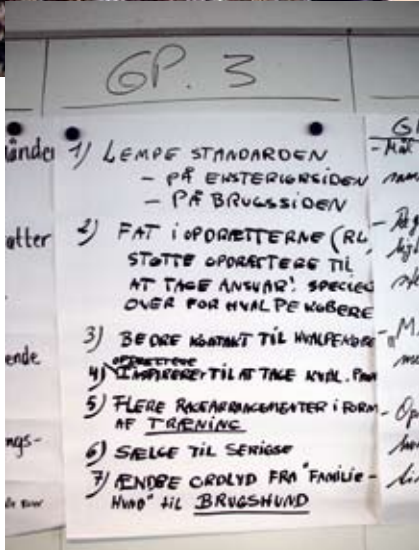 GP. 3
1) LEMPE STANDARDEN
- PÅ EKSTERIØRSIDEN
- PÅ BRUGSSIDEN
2) FAT i OPDRÆTTERNE (RL,
STØTTE OPDRÆTTERE TIL
AT TAGE ANSVAR! SPECIEL
OVER FOR HVALPEKØBERE
3) BEDRE KONTAKT TIL HVALPEKØBE
OPDRÆTTERE
4) INSPIRERE TIL AT TAGE KVAL.
5) FLERE RACEARRANGEMENTER i FORM
AF TRÆNING
6) SÆLGE TIL SERIØSE
7) ÆNDRE ORDLYD FRA "FAMILIE-
HUND" til BRUGSHUND
ånder
atter
ende
ngs-
- Mål